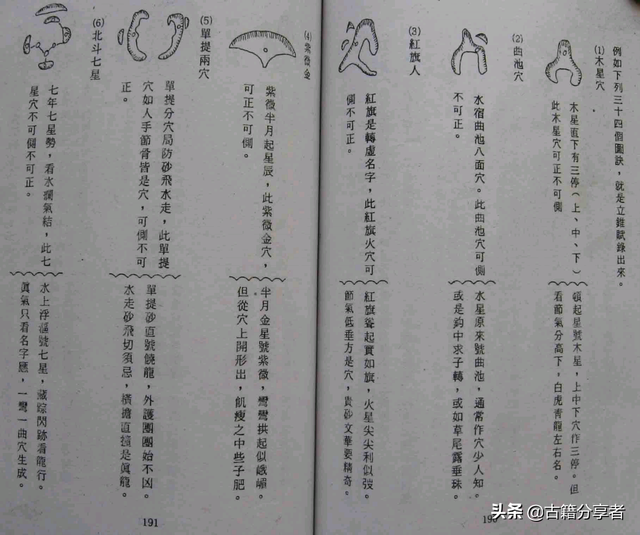 例如下列三十四個圖訣，就是立錐賦錄出來。
(1)木星穴
木星直下有三停（上、中、下）
此木星穴可正不可側
頓起星號木星，上中下穴作三停。但
看節氣分高下，白虎青龍左右名。
(2)曲池穴
水宿曲池八面穴。此曲池穴可側
不可正。
水星原來號曲池，通常作穴少人知。
或是鈎中求子轉，或如草尾露垂珠。
(3)紅旗人
紅旗是轉虛名字，此紅旗火穴可
側不可正。
紅旗聳起貫如旗，火星尖尖利似弦。
節氣低垂方是穴，貴砂文華要精奇。
190
(4)紫微金
紫微半月起星辰，此紫微金穴，
可正不可側。
半月金星號紫微，彎彎拱起似峨嵋。
但從穴上開形出，飢瘦之中些子肥。
(5)單提兩穴
單提分穴局防砂飛水走，此單提
穴如人手節骨皆是穴，可側不可
正。
單提砂直號饒龍，外護團團始不凶。
水走砂飛切須忌，橫擔直撞是眞龍。
(6)北斗七星
七年七星勢，看水瀾氣結，此七
星穴不可正。
水上浮漚號七星，藏踪閃跡看龍行。
眞氣只看名字應，一彎一曲穴生成。
191
头条 @古籍分享者